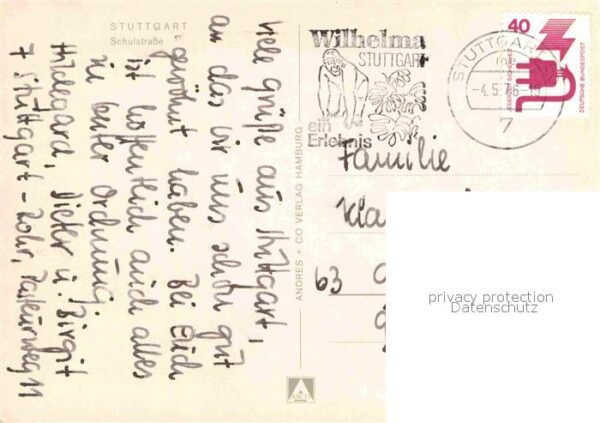 STUTTGART
Schulstraße
Viele Grüße aus Stuttgart,
an das wir uns schon gut
gewöhnt haben. Bei Euch
ist hoffentlich auch alles
in bester Ordnung.
Hildegard, Dieter u. Birgit
7 Stuttgart - Rohr,
ANDRES + CO VERLAG HAMBURG
ASCO
Wilhelma
STUTTGART
ein
Erlebnis
STUTTGART
-4.5.76-
7
40
DEUTSCHE BUNDESPOST
Familie
Kla
63
privacy protection
Datenschutz